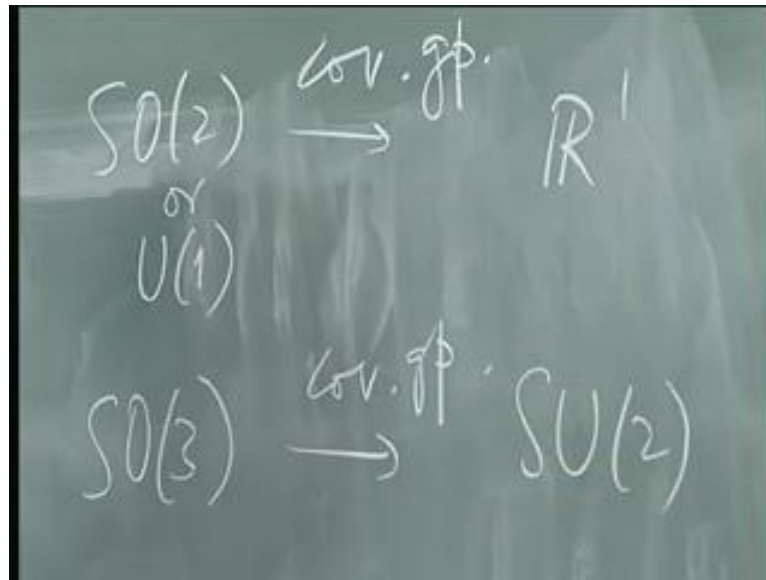 SO(2) cov. gp. → R¹
or
U(1)
SO(3) cov. gp. → SU(2)